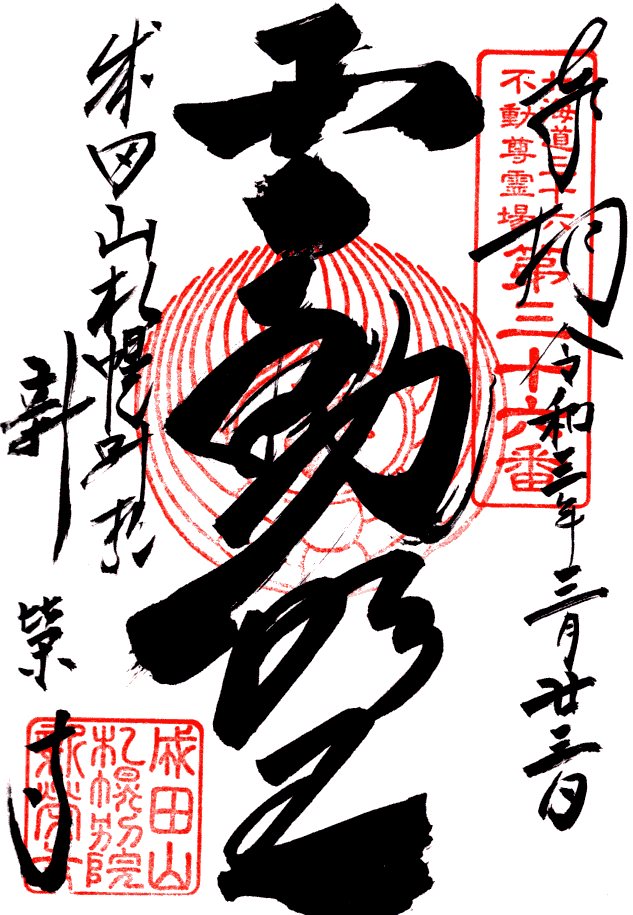 奉拝
令和三年三月廿三日
北海道三十六
不動尊霊場
第三十六番
不動明王
成田山札幌別院
新栄寺
成田山
札幌別院
新榮寺